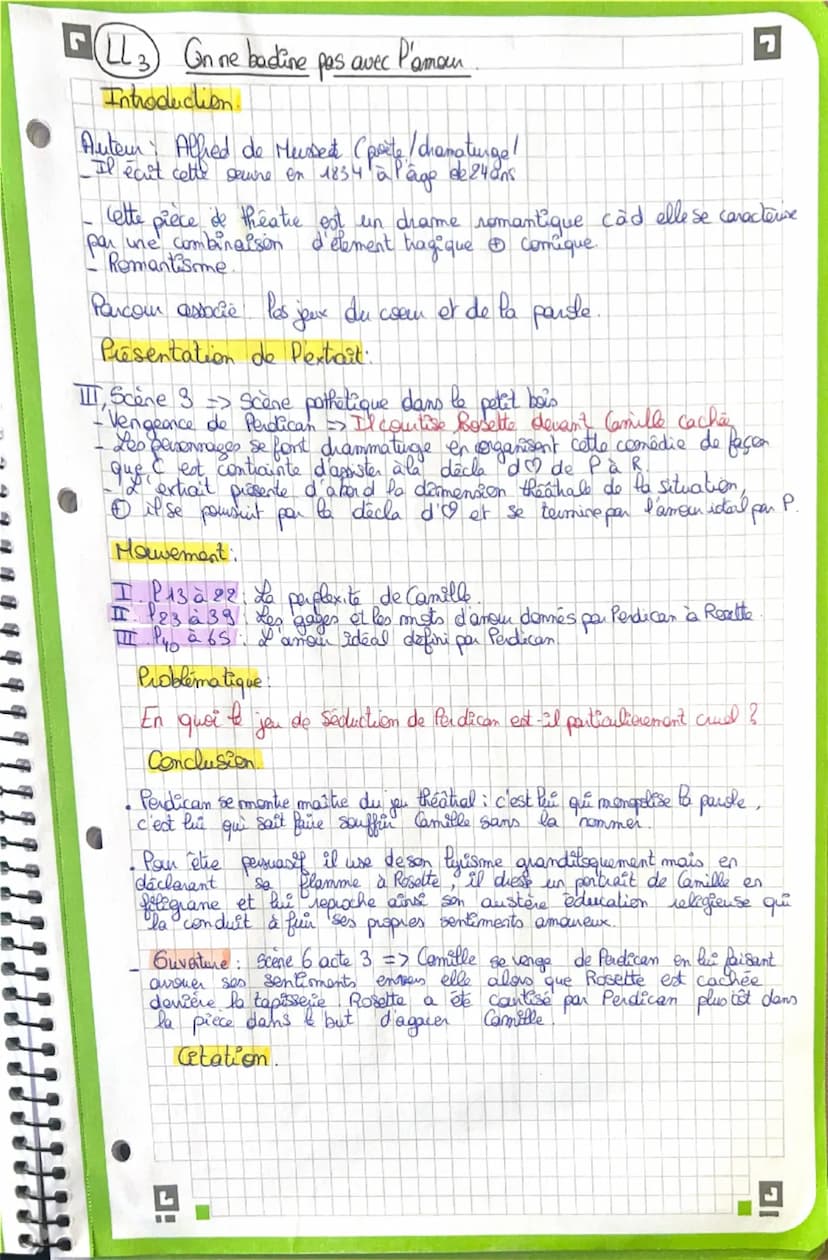 LL3 On ne badine pas avec l'amour.
Introduction.
Auteur : Alfred de Musset (poète/dramaturge)
- Il écrit cette œuvre en 1834 à l'âge de 24 ans
- Cette pièce de théatre est un drame romantique càd elle se caractérise
par une combinaison d'élément tragique ⊕ comique.
- Romantisme.
Parcour associé : les jeux du coeur et de la parole.
Présentation de l'extrait :
III, Scène 3 => Scène pathétique dans le petit bois
- Vengeance de Perdican => Il courtise Rosette devant Camille cachée
- Les personnages se font drammaturge en organisant cette comédie de façon
que C est contrainte d'assister à la décla d'♡ de P à R.
- L'extrait présente d'abord la dimension théâtrale de la situation,
⊕ il se poursuit par la décla d'♡ et se termine par l'amour idéal par P.
Mouvement :
I. l13 à 22 : La perplexité de Camille.
II. l23 à 39 : Les gages et les mots d'amour donnés par Perdican à Rosette.
III. l40 à 65 : L'amour idéal défini par Perdican.
Problématique :
En quoi le jeu de séduction de Perdican est-il particulièrement cruel ?
Conclusion.
• Perdican se montre maître du jeu théâtral : c'est lui qui monopolise la parole,
c'est lui qui sait faire souffrir Camille sans la nommer.
• Pour être persuasif il use de son lyrisme grandiloquement mais en
déclarant sa flamme à Rosette, il dresse un portrait de Camille en
filigrane et lui reproche ainsi son austère éducation religieuse qui
la conduit à fuir ses propres sentiments amoureux.
- Ouverture : Scène 6 acte 3 => Camille se venge de Perdican en lui faisant
avouer ses sentiments envers elle alors que Rosette est cachée
derrière la tapisserie. Rosette a été courtisé par Perdican plus tôt dans
la pièce dans le but d'agacer Camille.
Citation.